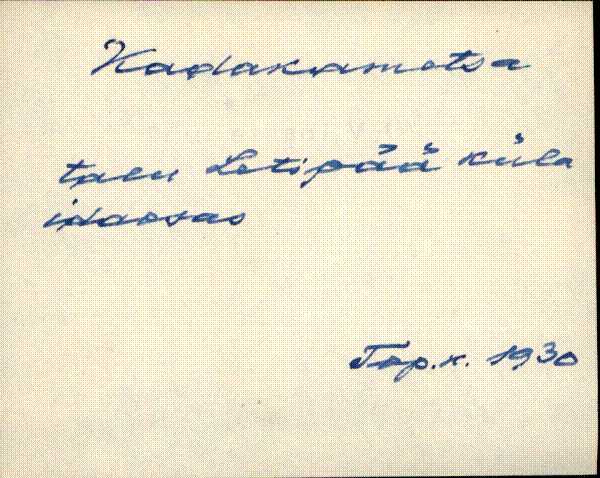 Kadakametsa
talu Letipää küla
idaosas
Top.k. 1930